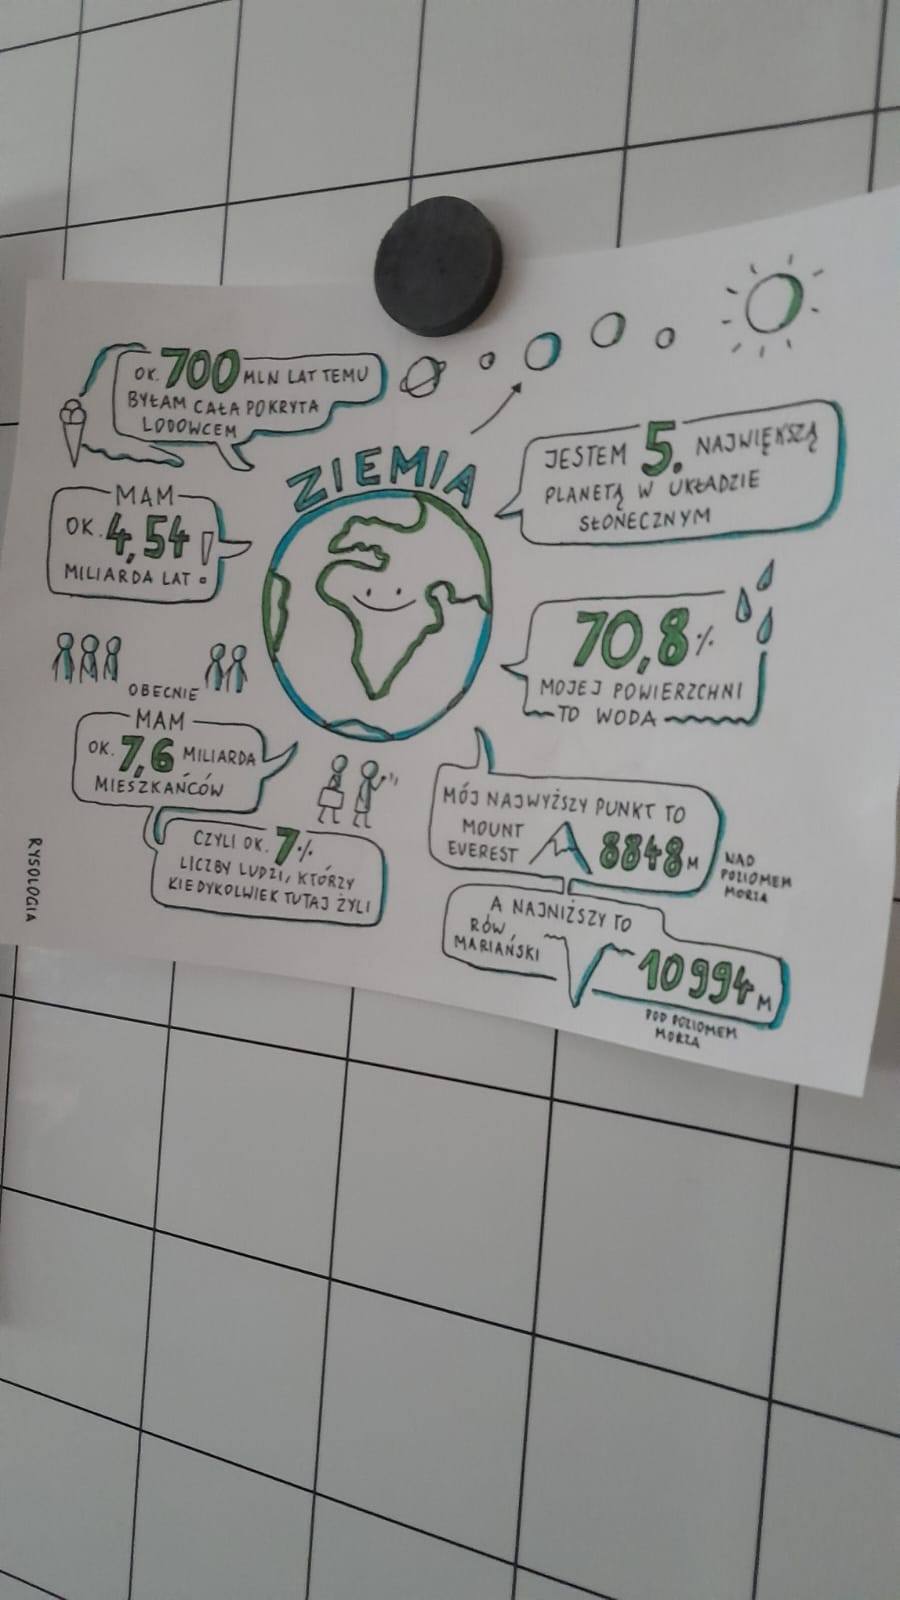 OK. 700 MLN LAT TEMU
BYŁAM CAŁA POKRYTA
LODOWCEM
ZIEMIA
JESTEM 5. NAJWIĘKSZĄ
PLANETĄ W UKŁADZIE
SŁONECZNYM
MAM
OK. 4,54!
MILIARDA LAT
70,8%
MOJEJ POWIERZCHNI
TO WODA
OBECNIE
MAM
OK. 7,6 MILIARDA
MIESZKAŃCÓW
CZYLI OK. 7%
LICZBY LUDZI, KTÓRZY
KIEDYKOLWIEK TUTAJ ŻYLI
MÓJ NAJWYŻSZY PUNKT TO
MOUNT
EVEREST 8848 M
NAD
POZIOMEM
MORZA
A NAJNIŻSZY TO
RÓW
MARIAŃSKI
10994 M
POD POZIOMEM
MORZA
RYSOLOGIA